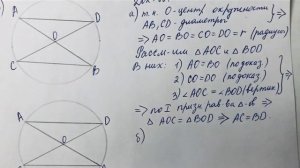 а) т.к. O-центр окружности и
AB, CD-диаметры
=> AO=BO=CO=DO=r (радиусы)
Рассм-им △AOC и △BOD
В них: 1) AO=BO (подоказ.)
2) CO=DO (подоказ.)
3) ∠AOC=∠BOD (вертик)
=> по I призн рав-ва △-в =>
△AOC=△BOD => AC=BD.
б)
A
D
O
C
B
A
D
O